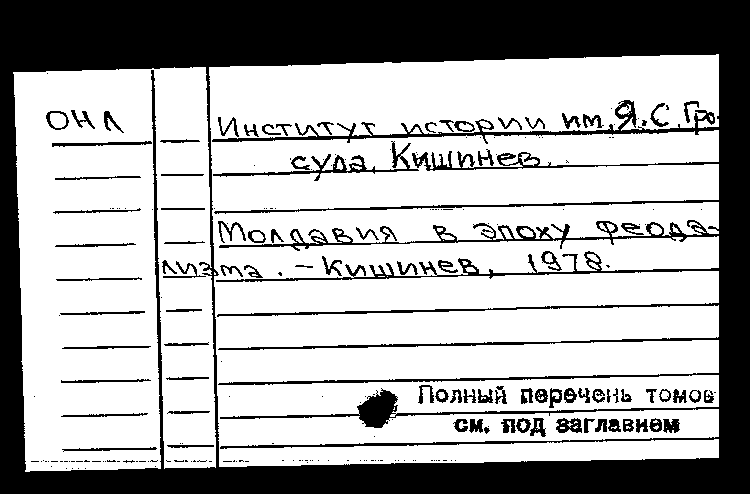 ОНЛ
Институт истории им. Я.С. Гро-
сула. Кишинев.
Молдавия в эпоху феода-
лизма. – Кишинев, 1978.
Полный перечень томов
см. под заглавием